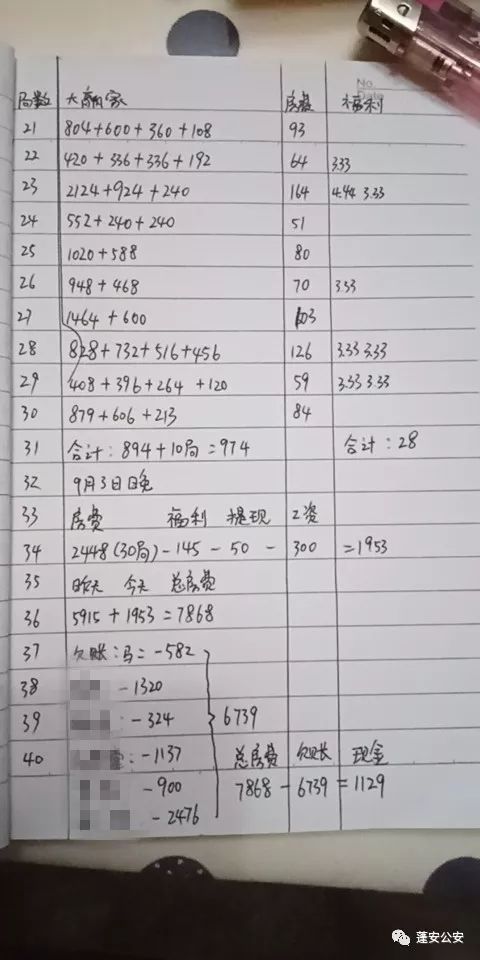 No.
Date
局数 大赢家 房费 福利
21 804+600+360+108 93
22 420+336+336+192 64 3.33
23 2124+924+240 164 4.44 3.33
24 552+240+240 51
25 1020+588 80
26 948+468 70 3.33
27 1464+600 103
28 828+732+516+456 126 3.33 3.33
29 408+396+264+120 59 3.33 3.33
30 879+606+213 84
31 合计:894+10局=974 合计:28
32 9月3日晚
33 房费 福利 提现 工资
34 2448(30局)-145-50-300=1953
35 昨天 今天 总房费
36 5915+1953=7868
37 欠账:马二-582
38 -1320
39 -324 6739
40 -1137 总房费 欠账 现金
-900 7868-6739=1129
-2476
蓬安公安